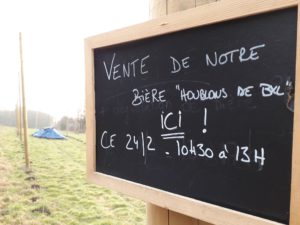 VENTE DE NOTRE
BIÈRE "HOUBLONS DE BXL"
ICI !
CE 24/2 - 10H30 à 13H